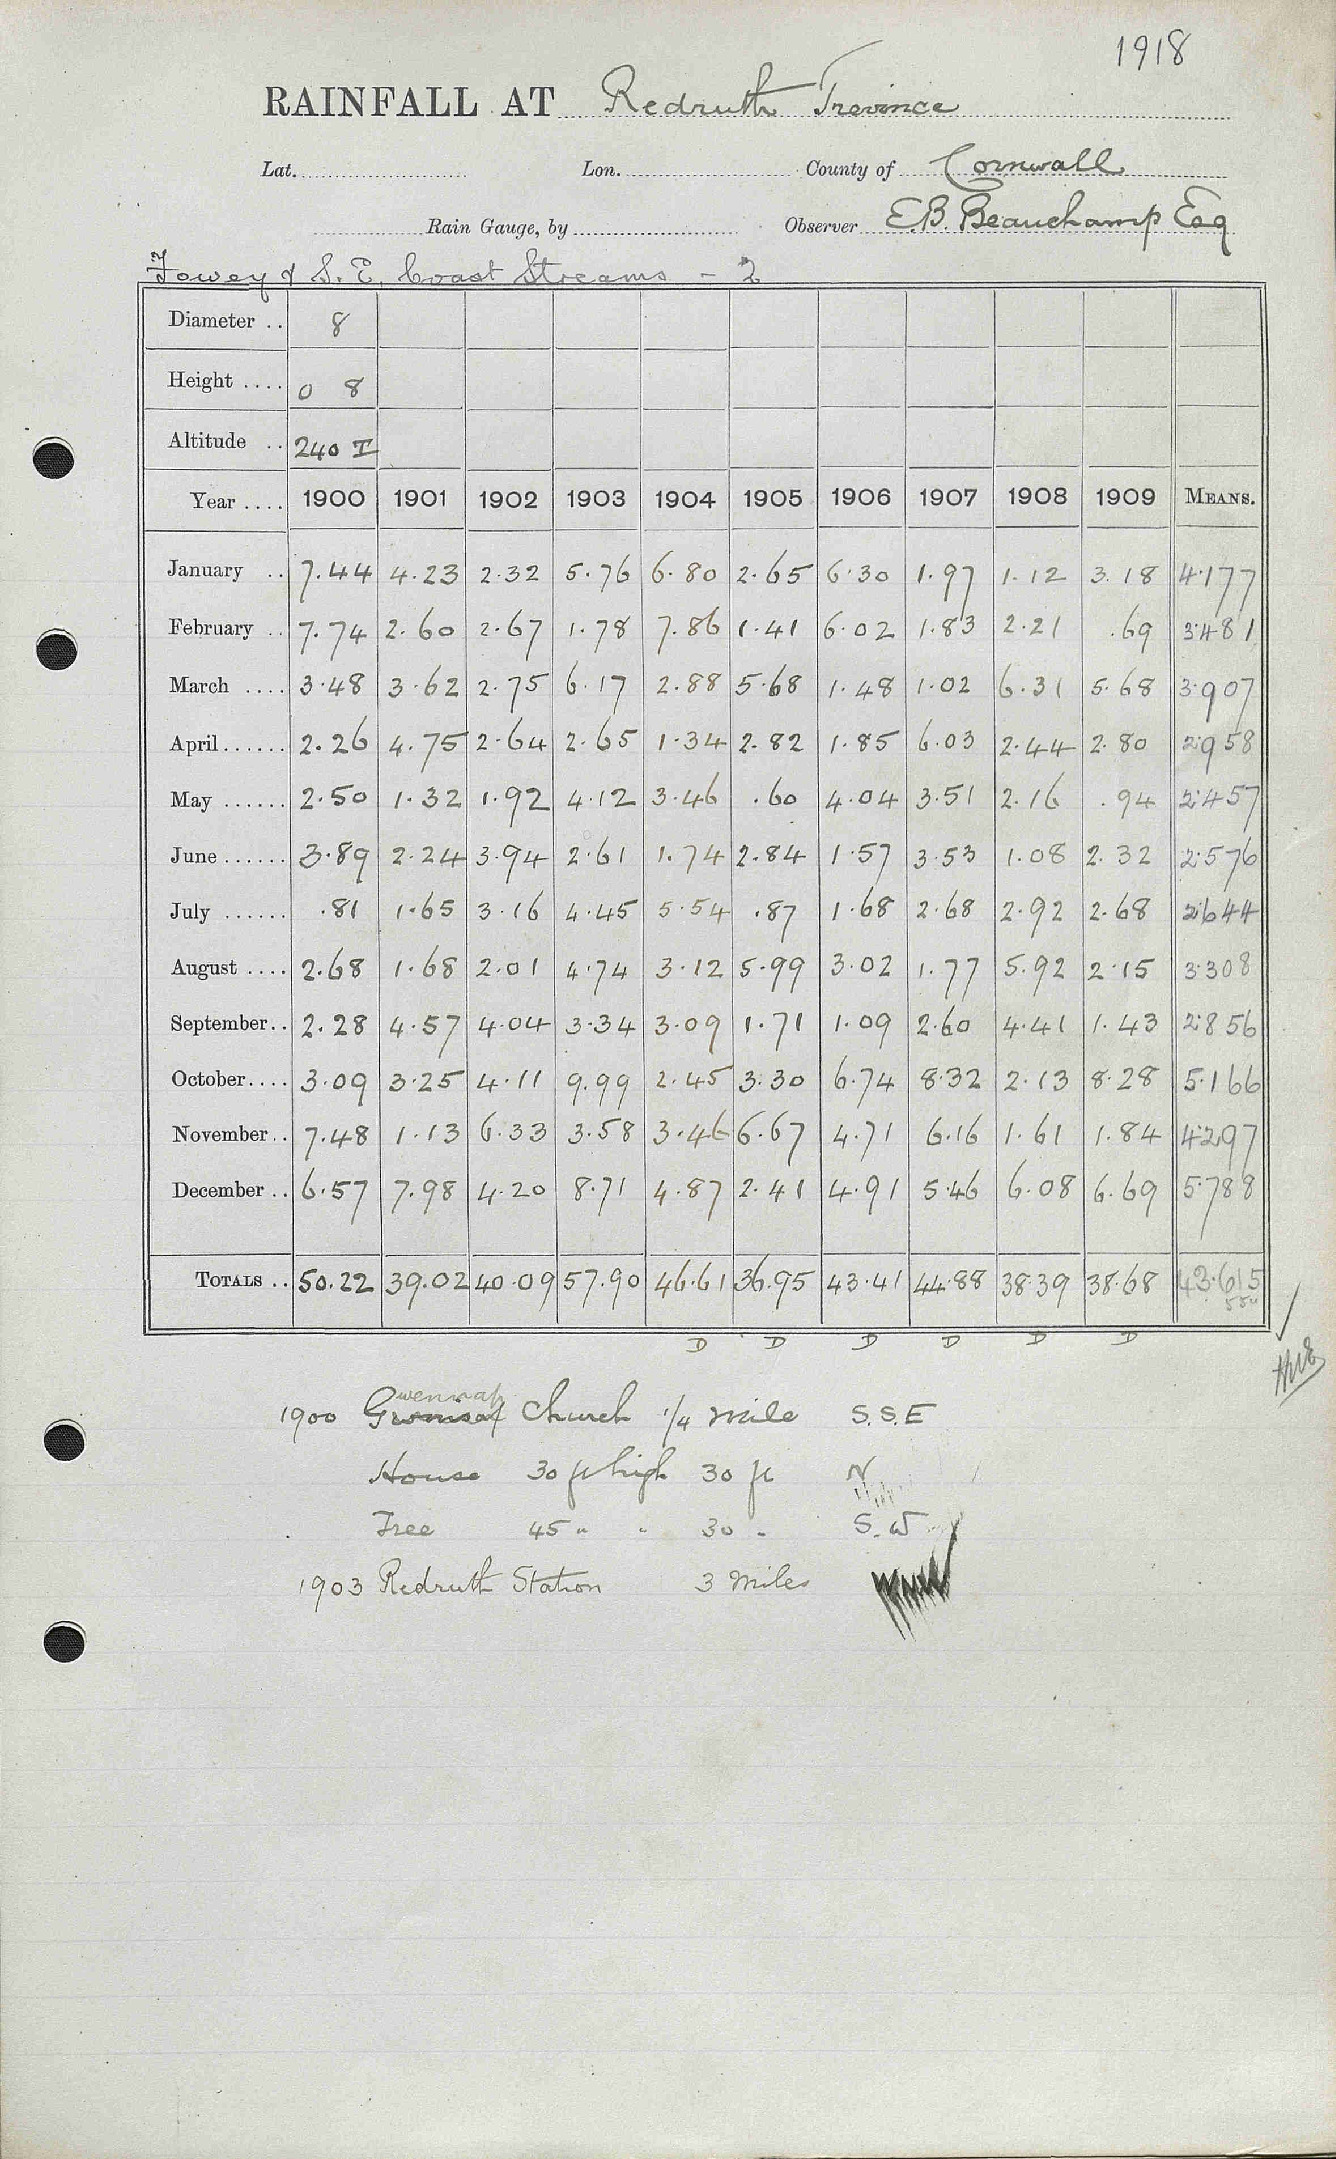 1918
RAINFALL AT Redruth Trevince
Lat. Lon. County of Cornwall
Rain Gauge, by Observer E.B. Beauchamp Esq
Fowey & S. E. Coast Streams - 2
Diameter .. 8
Height .... 0 8
Altitude .. 240 T
Year .... 1900 1901 1902 1903 1904 1905 1906 1907 1908 1909 MEANS.
January .. 7.44 4.23 2.32 5.76 6.80 2.65 6.30 1.97 1.12 3.18 4.177
February .. 7.74 2.60 2.67 1.78 7.86 1.41 6.02 1.83 2.21 .69 3.481
March .... 3.48 3.62 2.75 6.17 2.88 5.68 1.48 1.02 6.31 5.68 3.907
April ...... 2.26 4.75 2.64 2.65 1.34 2.82 1.85 6.03 2.44 2.80 2.958
May ...... 2.50 1.32 1.92 4.12 3.46 .60 4.04 3.51 2.16 .94 2.457
June ...... 3.89 2.24 3.94 2.61 1.74 2.84 1.57 3.53 1.08 2.32 2.576
July ...... .81 1.65 3.16 4.45 5.54 .87 1.68 2.68 2.92 2.68 2.644
August .... 2.68 1.68 2.01 4.74 3.12 5.99 3.02 1.77 5.92 2.15 3.308
September.. 2.28 4.57 4.04 3.34 3.09 1.71 1.09 2.60 4.41 1.43 2.856
October.... 3.09 3.25 4.11 9.99 2.45 3.30 6.74 8.32 2.13 8.28 5.166
November.. 7.48 1.13 6.33 3.58 3.46 6.67 4.71 6.16 1.61 1.84 4.297
December .. 6.57 7.98 4.20 8.71 4.87 2.41 4.91 5.46 6.08 6.69 5.788
TOTALS .. 50.22 39.02 40.09 57.90 46.61 36.95 43.41 44.88 38.39 38.68 43.615
D D D D D D
wennap
1900 Church 1/4 mile S.S.E
House 30 ft high 30 ft N
Tree 45 " " 30 " S.W
1903 Redruth Station 3 miles